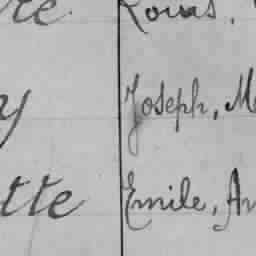 re Louis,
y Joseph, M
tte Emile, An